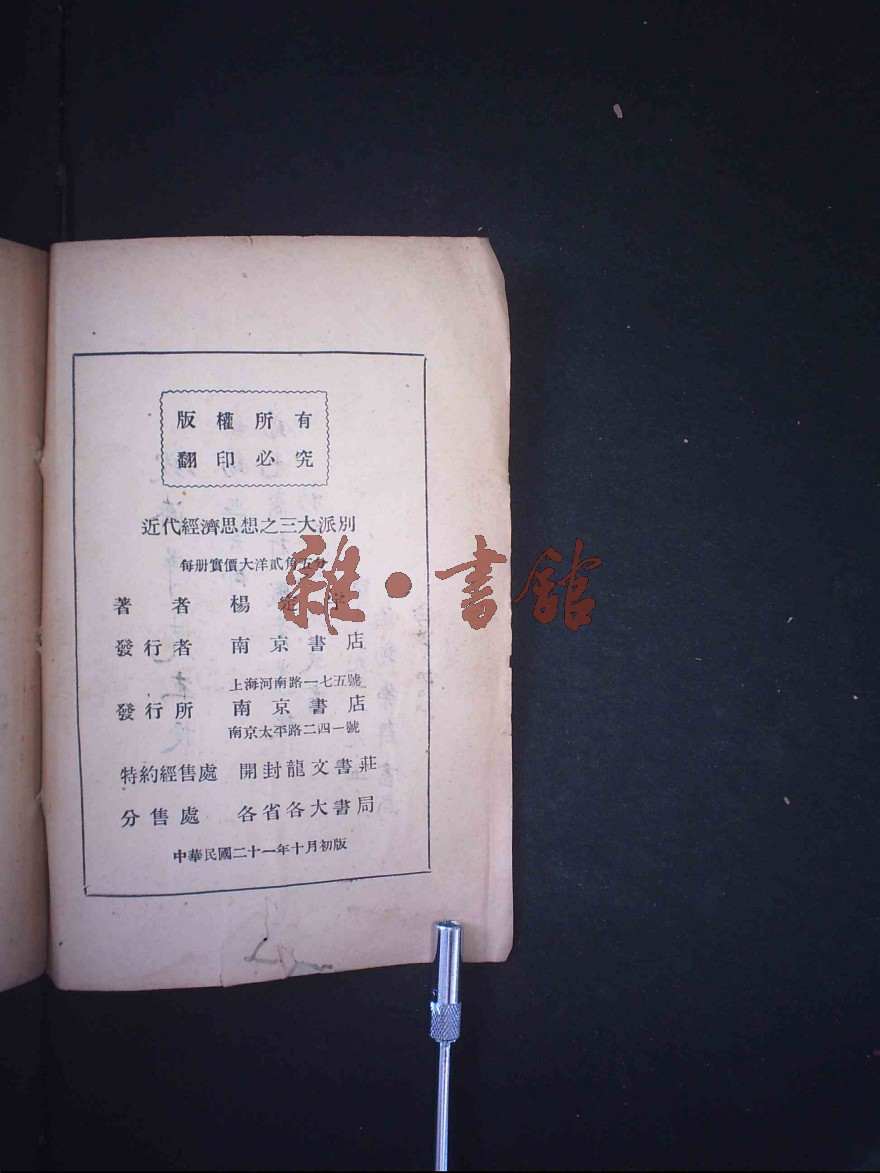 版權所有
翻印必究
近代經濟思想之三大派別
每册實價大洋貳角五分
著者 楊宇
發行者 南京書店
上海河南路一七五號
發行所 南京書店
南京太平路二四一號
特約經售處 開封龍文書莊
分售處 各省各大書局
中華民國二十一年十月初版
雜·書館